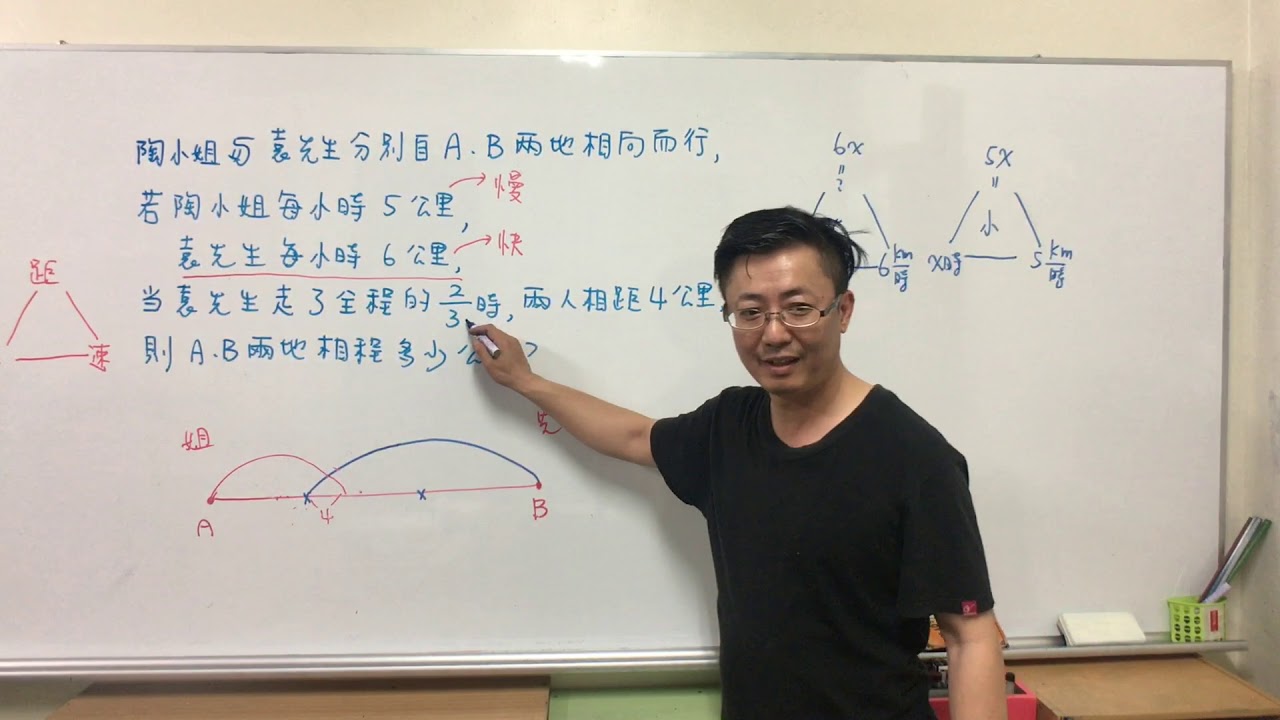 陶小姐与袁先生分别自A.B兩地相向而行,
若陶小姐每小時5公里,
慢
袁先生每小時6公里,
快
当袁先生走了全程的2/3時,兩人相距4公里
則A.B兩地相程多少公?
距
速
姐
先
A
4
B
6x
=
?
6 km/時
5x
=
小
x時
5 km/時